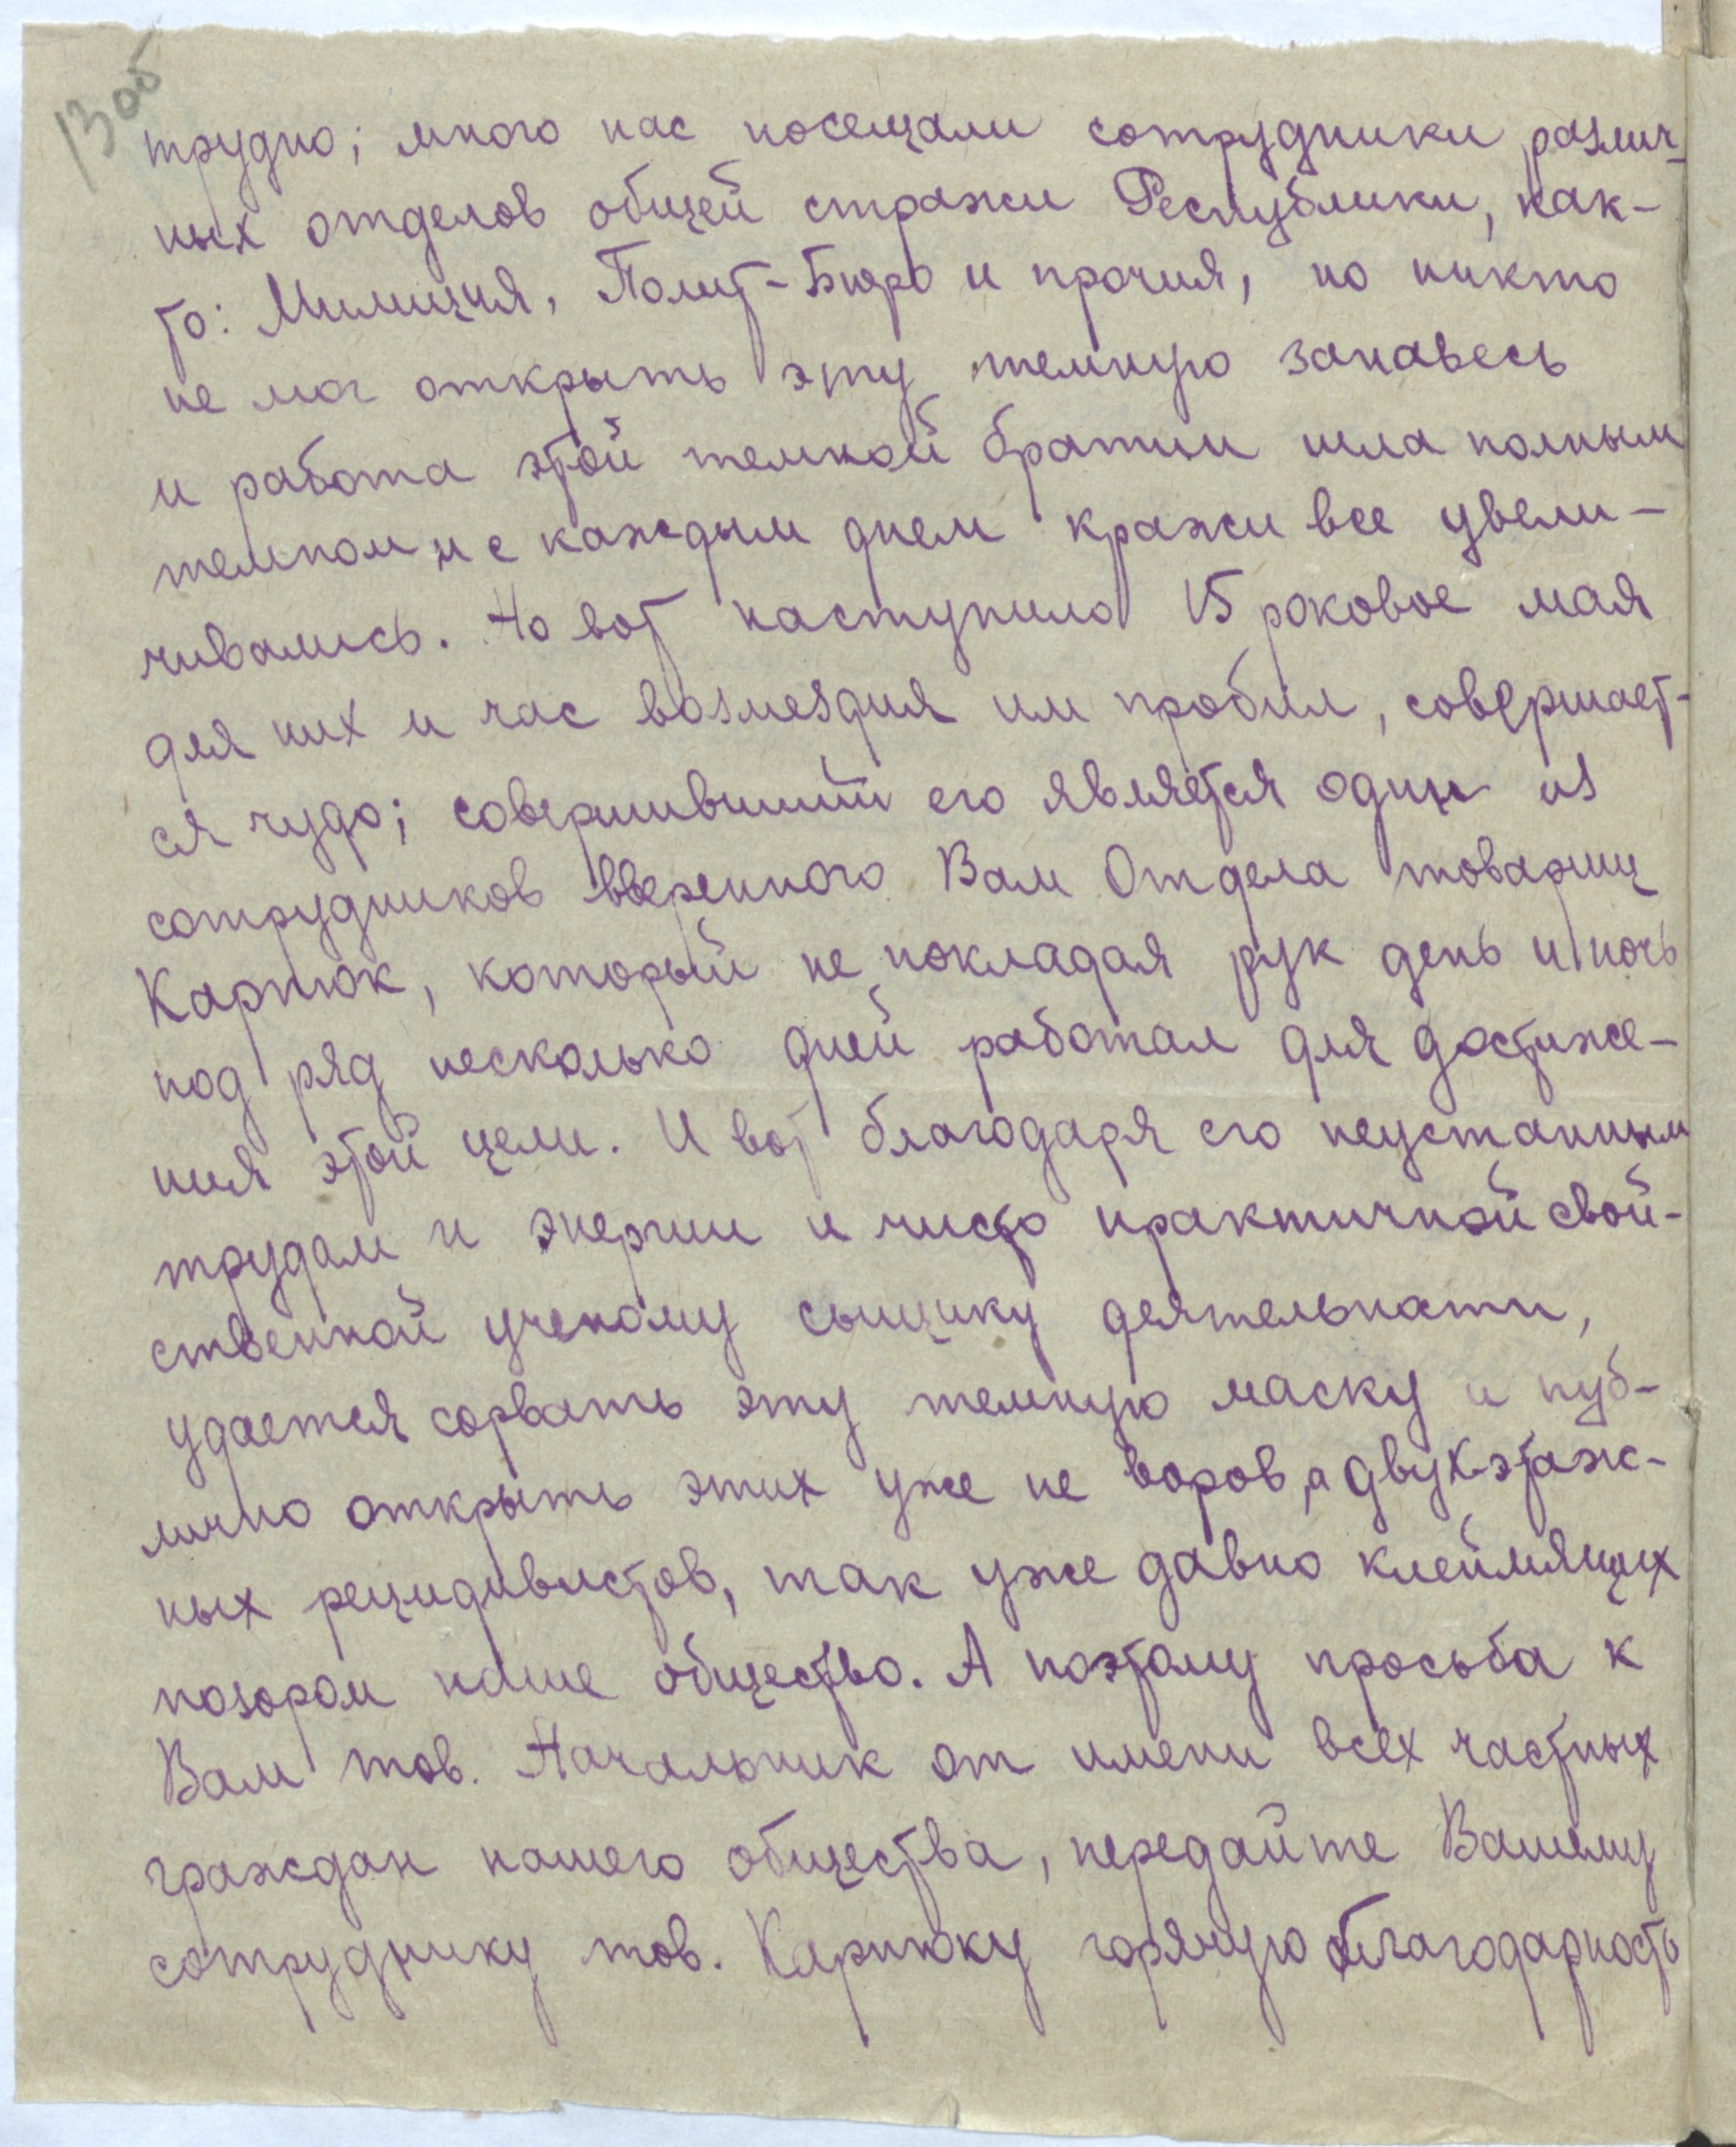 13 об
трудно; много нас посещали сотрудники различ-
ных отделов общей стражи Республики, как-
то: Милиция, Полит-Бюро и прочия, но никто
не мог открыть эту темную занавесь
и работа этой темной братии шла полным
темпом и с каждым днем кражи все увели-
чивались. Но вот наступило 15 роковое мая
для них и час возмездия им пробил, совершает-
ся чудо; совершивший его является один из
сотрудников вверенного Вам Отдела товарищ
Карпюк, который не покладая рук день и ночь
под ряд несколько дней работал для достиже-
ния этой цели. И вот благодаря его неустанным
трудам и энергии и чисто практичной свой-
ственной ученому сыщику деятельности,
удается сорвать эту темную маску и пуб-
лично открыть этих уже не воров, а двух-этаж-
ных рецидивистов, так уже давно клеймящих
позором наше общество. А поэтому просьба к
Вам тов. Начальник от имени всех частных
граждан нашего общества, передайте Вашему
сотруднику тов. Карпюку горячую благодарность